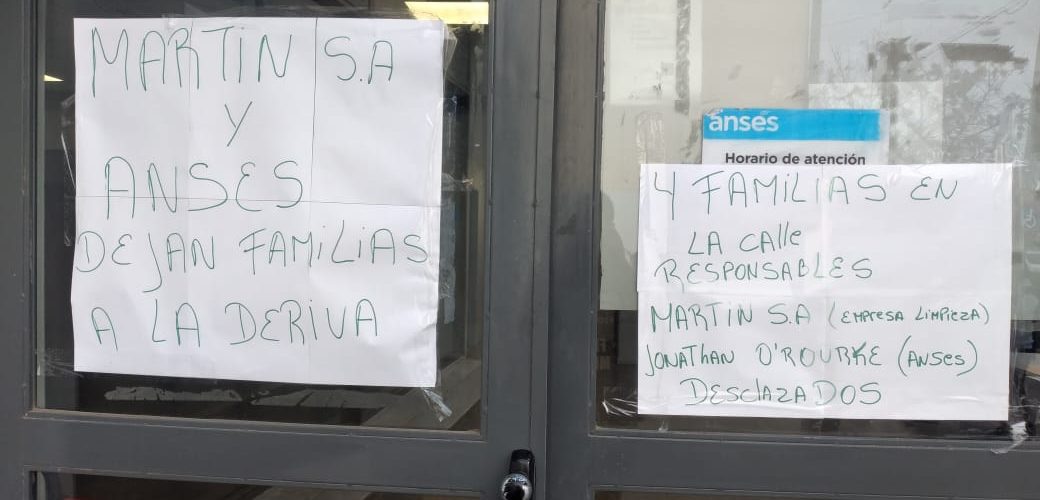 MARTIN S.A
Y
ANSES
DEJAN FAMILIAS
A LA DERIVA
anses
Horario de atención
4 FAMILIAS EN
LA CAlle
RESPONSABLES
MARTIN S.A (EMPRESA LIMPIEZA)
JONATHAN O'ROURKE (ANSES)
DESCLAZADOS